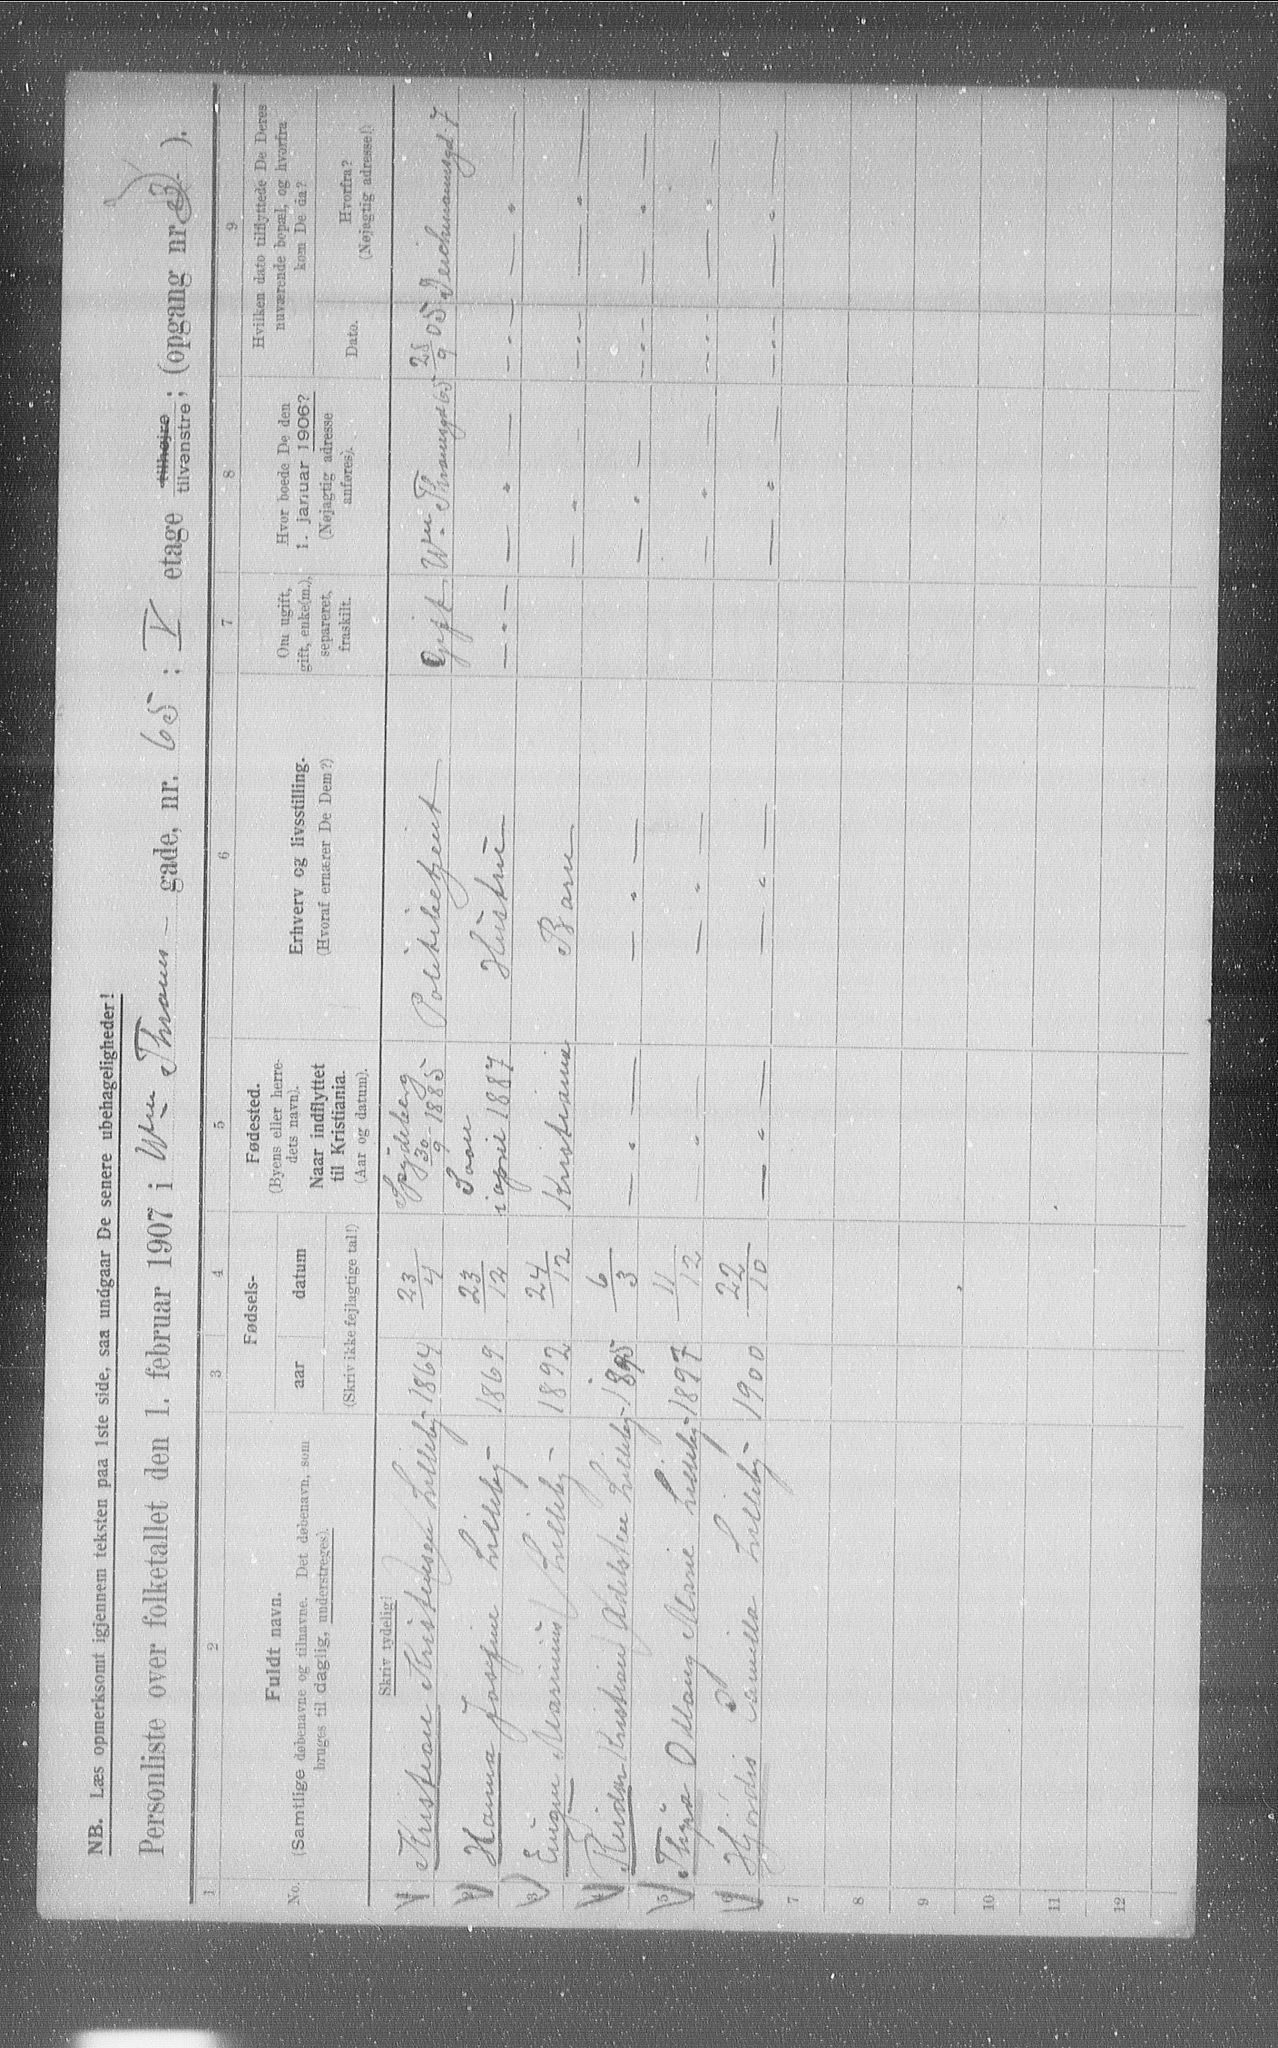 NB. Læs opmerksomt igjennem teksten paa 1ste side, saa undgaar De senere ubehageligheder!
Personliste over folketallet den 1. februar 1907 i Wm Thranes gade, nr. 65 ; V etage tilhøjre tilvenstre ; (opgang nr. ).
1 2 3 4 5 6 7 8 9
No.
Fuldt navn.
(Samtlige døbenavne og tilnavne. Det døbenavn, som
bruges til daglig, understreges).
Fødsels-
aar datum
(Skriv ikke fejlagtige tal!)
Fødested.
(Byens eller herre-
dets navn).
Naar indflyttet
til Kristiania.
(Aar og datum).
Erhverv og livsstilling.
(Hvoraf ernærer De Dem?)
Om ugift,
gift, enke(m.),
separeret,
fraskilt.
Hvor boede De den
1. januar 1906?
(Nøjagtig adresse
anføres).
Hvilken dato tilflyttede De Deres
nuværende bopæl, og hvorfra
kom De da?
Dato.
Hvorfra?
(Nøjagtig adresse!)
Skriv tydelig!
Kristian Kristensen Lilleby 1864 23/4 Spydeberg 30/9 - 1885 Politibetjent Gift Wm Thranesgd 65 28/9 05 Deichmannsgd 7
Hanna Josefine Lilleby 1869 23/12 Soon i april 1887 Hustru — " — — " — — " — — " —
3 Eugen Marinius Lilleby 1892 24/12 Kristiania Barn — " — " — — " —
4 Reidar Kristian Adelsten Lilleby 1895 6/3 — " — — " — — " — — " — — " —
5 Thyra Ottang Marie Lilleby 1897 11/12 — " — — " — — " — — " — — " —
6 Hjørdis Camilla Lilleby 1900 22/10 — " — — " — — " — — " — — " —
7
8
9
10
11
12